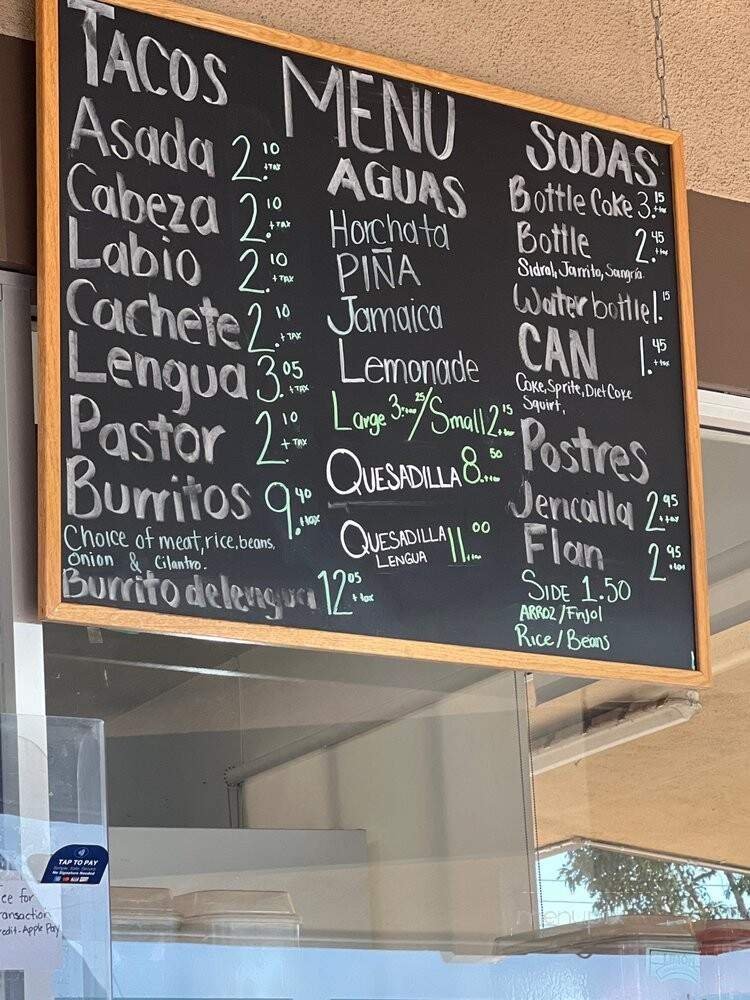 MENU
TACOS
Asada 2.10 +TAX
Cabeza 2.10 +TAX
Labio 2.10 +TAX
Cachete 2.10 +TAX
Lengua 3.05 +TAX
Pastor 2.10 +TAX
Burritos 9.40 +tax
Choice of meat, rice, beans,
Onion & Cilantro.
Burrito de lengua 12.05 +tax
AGUAS
Horchata
PIÑA
Jamaica
Lemonade
Large 3.25 / Small 2.15
QUESADILLA 8.50
QUESADILLA 11.00
LENGUA
SODAS
Bottle Coke 3.15 +tax
Bottle 2.45 +tax
Sidral, Jarrito, Sangria.
Water bottle 1.15
CAN 1.45 +tax
Coke, Sprite, Diet Coke
Squirt,
Postres
Jericalla 2.95 +tax
Flan 2.95 +tax
SIDE 1.50
ARROZ / Frijol
Rice / Beans
TAP TO PAY
No Signature Needed
ee for
ransaction
edit - Apple Pay